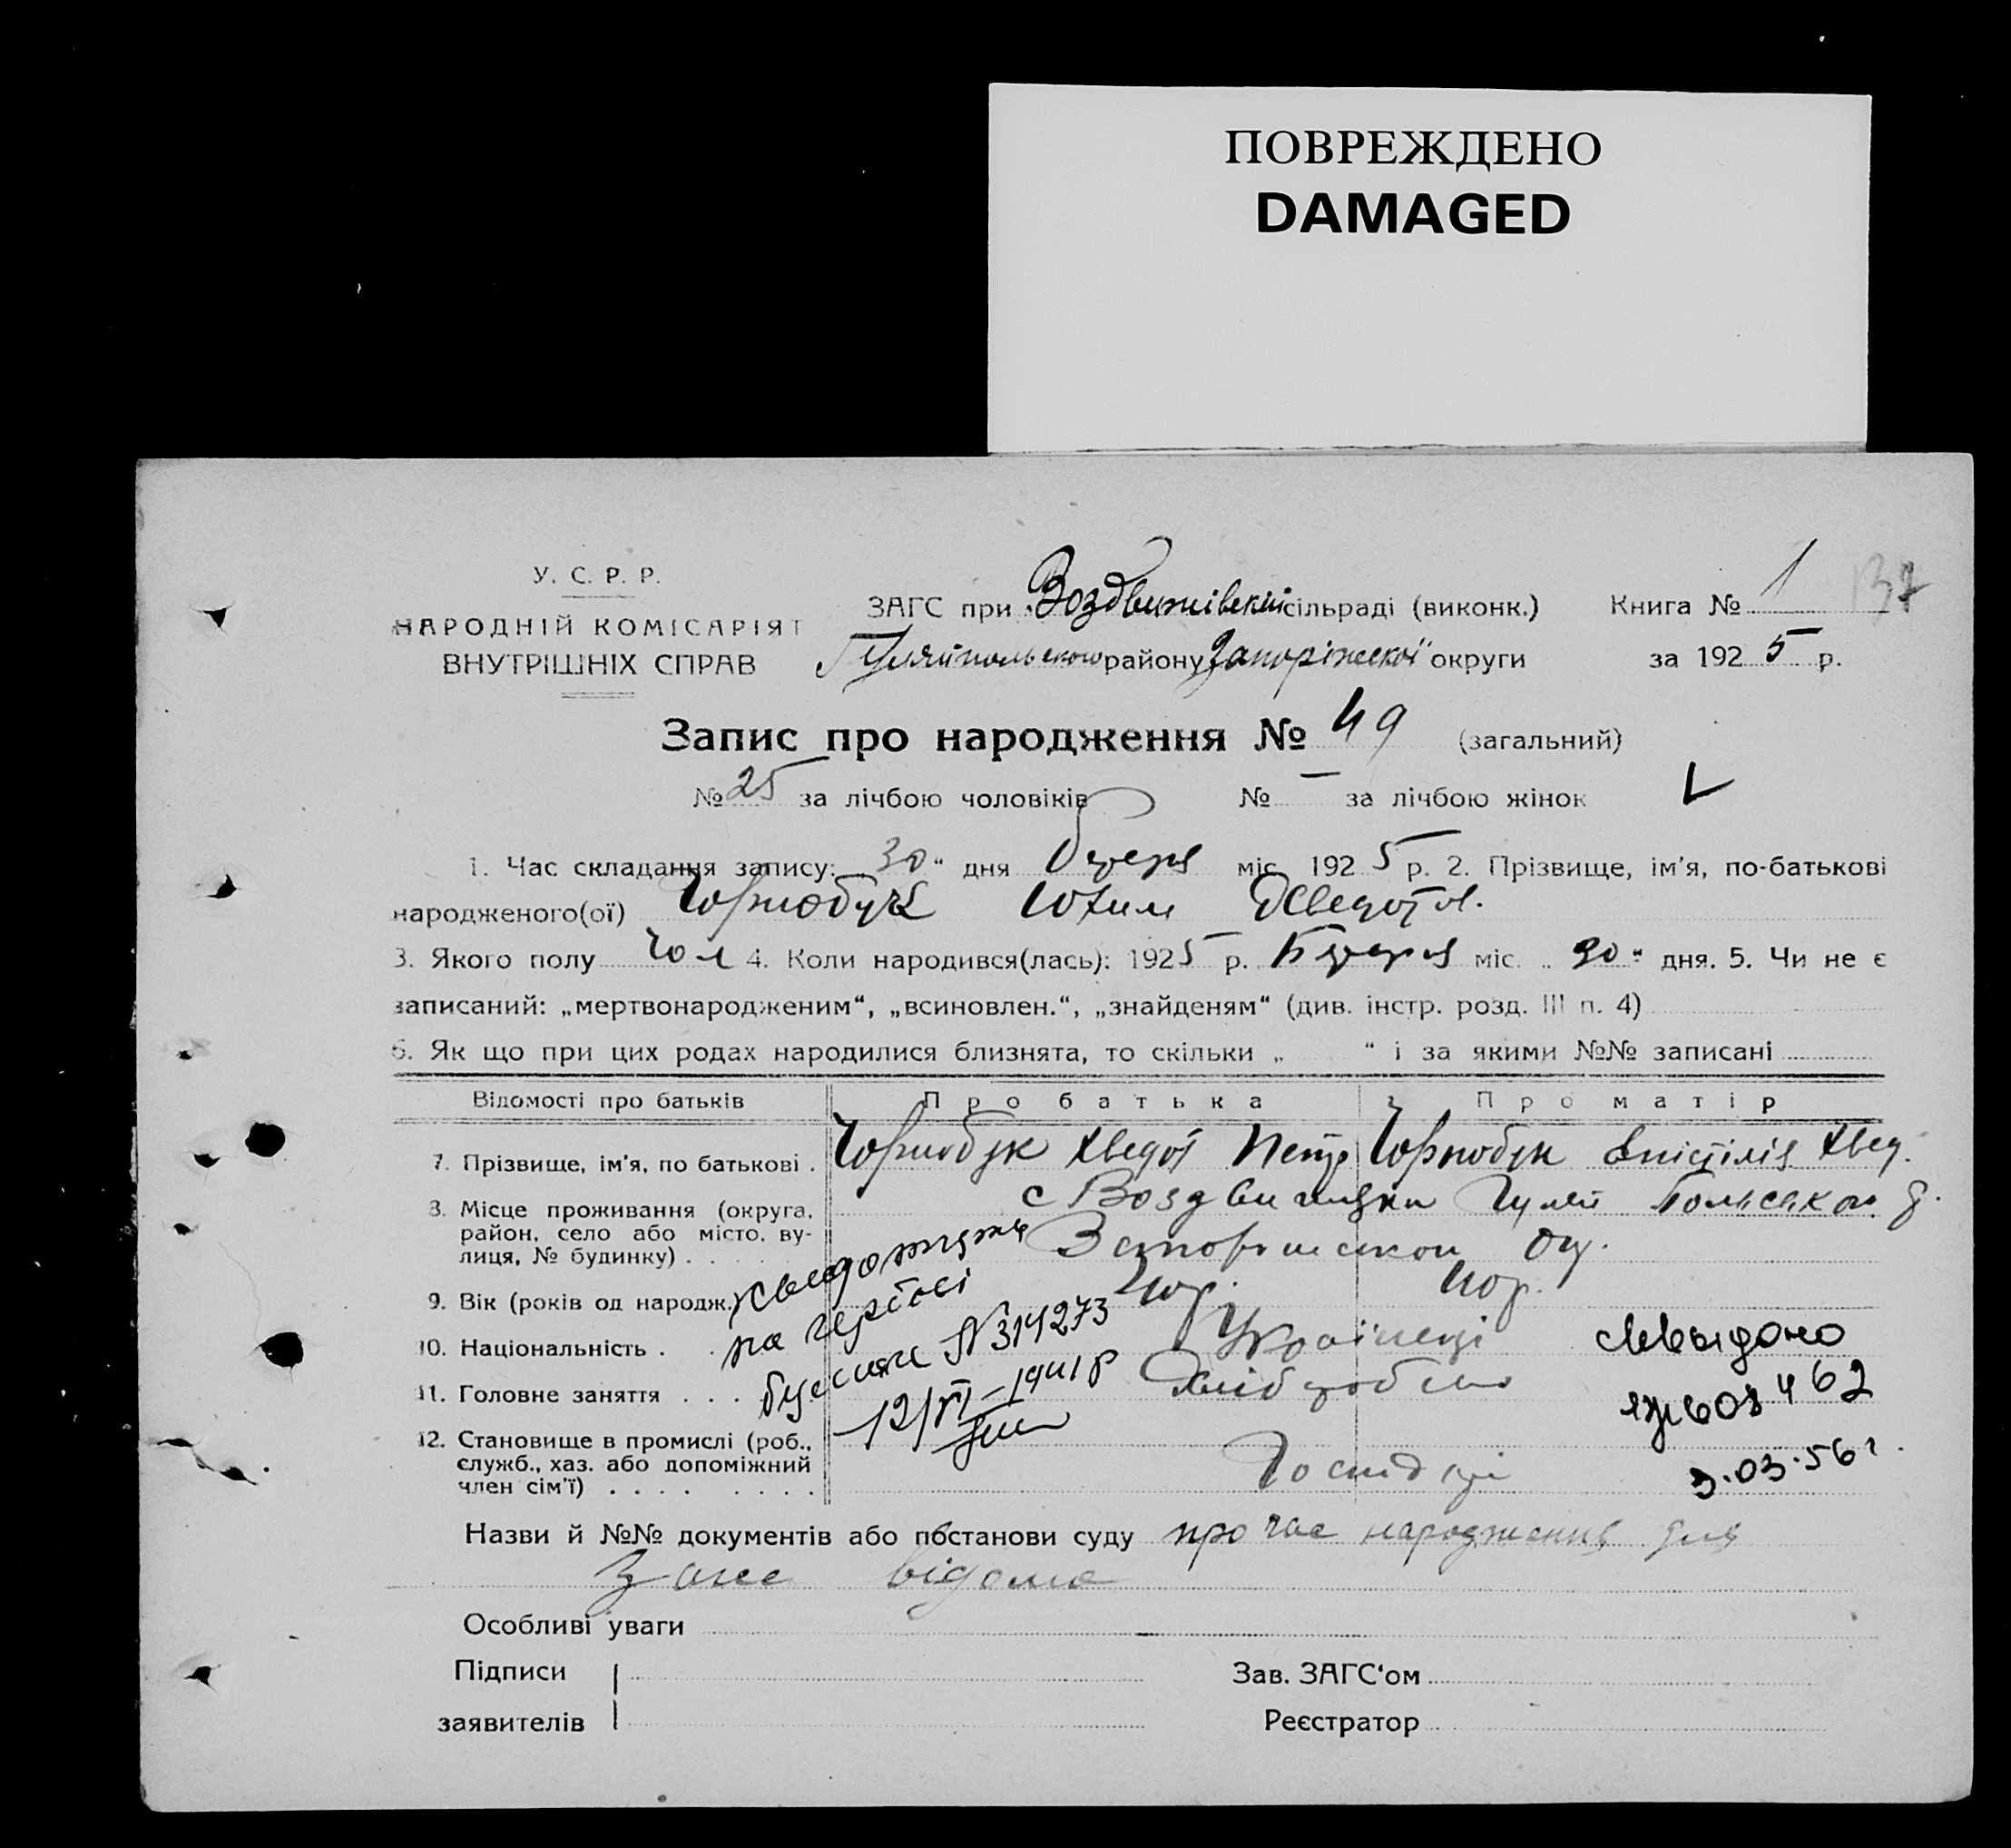 ПОВРЕЖДЕНО
DAMAGED
У. С. Р. Р.
НАРОДНІЙ КОМІСАРІЯТ
ВНУТРІШНІХ СПРАВ
ЗАГС при Воздвижівській сільраді (виконк.) Книга № 1 137
Гуляйпольського району Запоріжської округи за 1925 р.
Запис про народження № 49 (загальний)
№ 25 за лічбою чоловіків № — за лічбою жінок
1. Час складання запису: 30 “ дня міс. 1925 р. 2. Прізвище, ім'я, по-батькові
народженого(ої) Чорнобук Юхим Хведотов.
3. Якого полу чол 4. Коли народився(лась): 1925 р. міс. „ 30 “ дня. 5. Чи не є
записаний: „мертвонародженим“, „всиновлен.“, „знайденям“ (див. інстр. розд. III п. 4)
6. Як що при цих родах народилися близнята, то скільки „ “ і за якими №№ записані
Відомості про батьків Про батька Про матір
7. Прізвище, ім'я, по батькові . Чорнобук Хведот Петр Чорнобук Хвед.
8. Місце проживання (округа, район, село або місто, вулиця, № будинку) . . с Воздвижка Гуляй Польськой р.
Запорожской ок.
9. Вік (років од народж.)
10. Національність . . Українці
11. Головне заняття . . . Хлібороби
12. Становище в промислі (роб., служб., хаз. або допоміжний член сім'ї) . . . . Господарі
на
№ 314273
12/VI – 1941 р
603462
3.03.56 г.
Назви й №№ документів або постанови суду про час народження для
Загс відомо
Особливі уваги
Підписи
заявителів
Зав. ЗАГС‘ом
Реєстратор